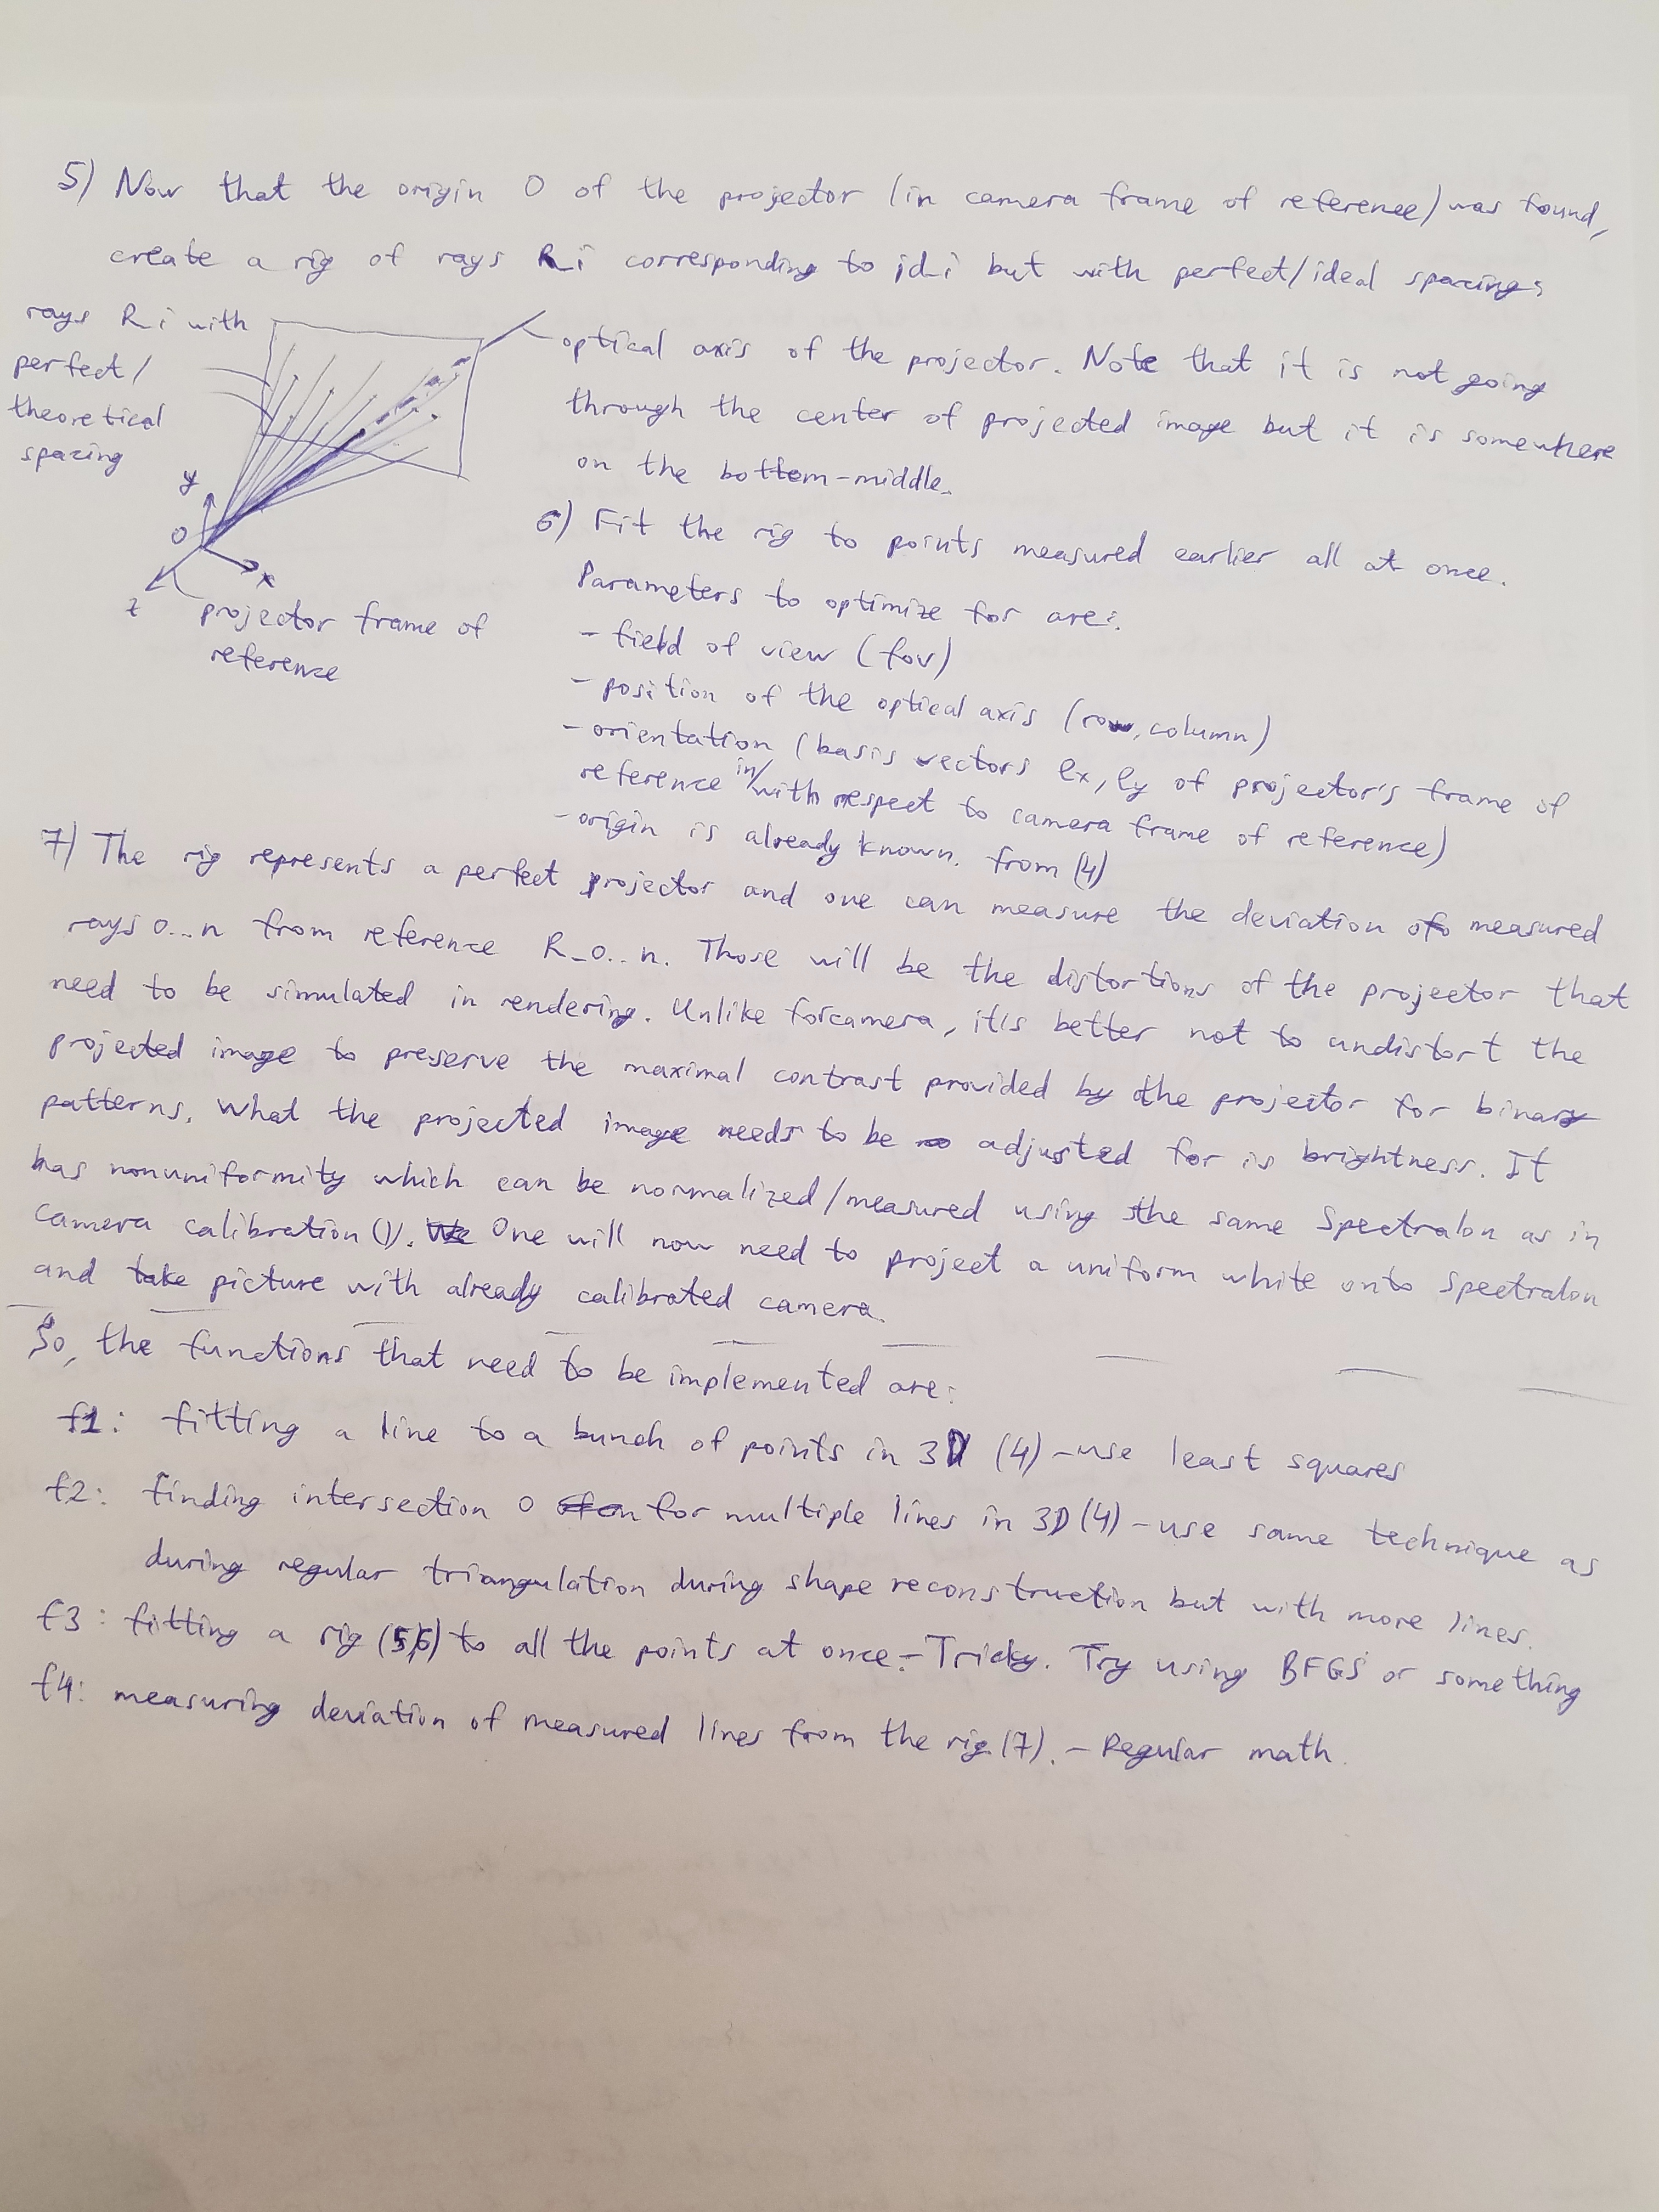 5) Now that the origin O of the projector (in camera frame of reference) was found,
create a rig of rays R_i corresponding to id_i but with perfect/ideal spacing:
rays R_i with
perfect/
theoretical
spacing
y
O
x
z
projector frame of
reference
optical axis of the projector. Note that it is not going
through the center of projected image but it is somewhere
on the bottom-middle.
6) Fit the rig to points measured earlier all at once.
Parameters to optimize for are:
- field of view (fov)
- position of the optical axis (row, column)
- orientation (basis vectors ex, ey of projector's frame of
reference in/with respect to camera frame of reference)
- origin is already known. from (4)
7) The rig represents a perfect projector and one can measure the deviation of measured
rays 0...n from reference R_0..n. Those will be the distortions of the projector that
need to be simulated in rendering. Unlike for camera, it's better not to undistort the
projected image to preserve the maximal contrast provided by the projector for binary
patterns. What the projected image needs to be adjusted for is brightness. It
has nonuniformity which can be normalized/measured using the same Spectralon as in
camera calibration (1). One will now need to project a uniform white onto Spectralon
and take picture with already calibrated camera.
So, the functions that need to be implemented are:
f1: fitting a line to a bunch of points in 3D (4) - use least squares
f2: finding intersection O for multiple lines in 3D (4) - use same technique as
during regular triangulation during shape reconstruction but with more lines.
f3: fitting a rig (5,6) to all the points at once. - Tricky. Try using BFGS or something
f4: measuring deviation of measured lines from the rig (7). - Regular math.